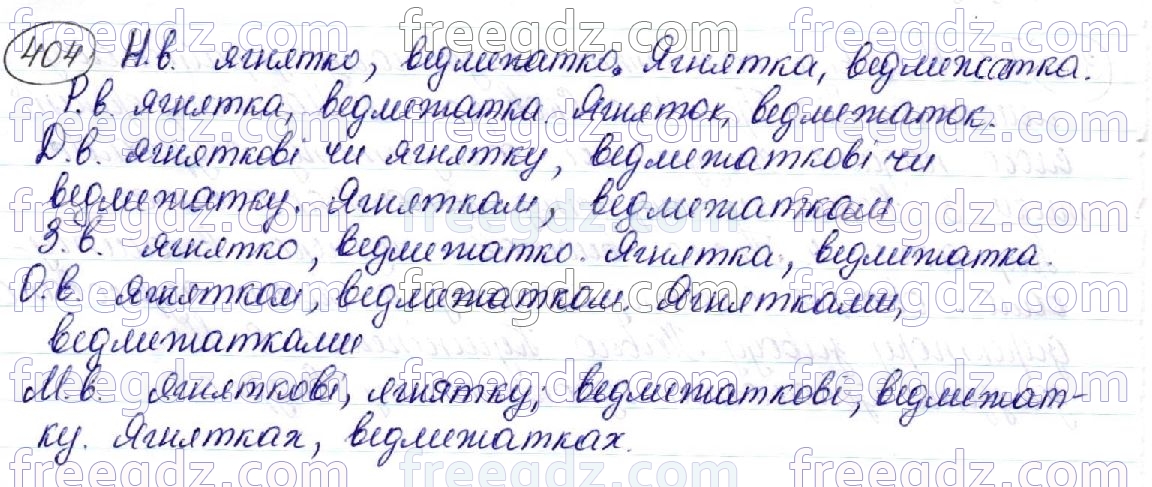 404 Н.в. ягнятко, ведмежатко. Ягнятка, ведмежатка.
Р.в. ягнятка, ведмежатка. Ягняток, ведмежаток.
Д.в. ягняткові чи ягнятку, ведмежаткові чи
ведмежатку. Ягняткам, ведмежаткам
З.в. ягнятко, ведмежатко. Ягнятка, ведмежатка.
О.в. ягнятком, ведмежатком. Ягнятками,
ведмежатками
М.в. ягняткові, ягнятку; ведмежаткові, ведмежат-
ку. Ягнятках, ведмежатках.
freegdz.com